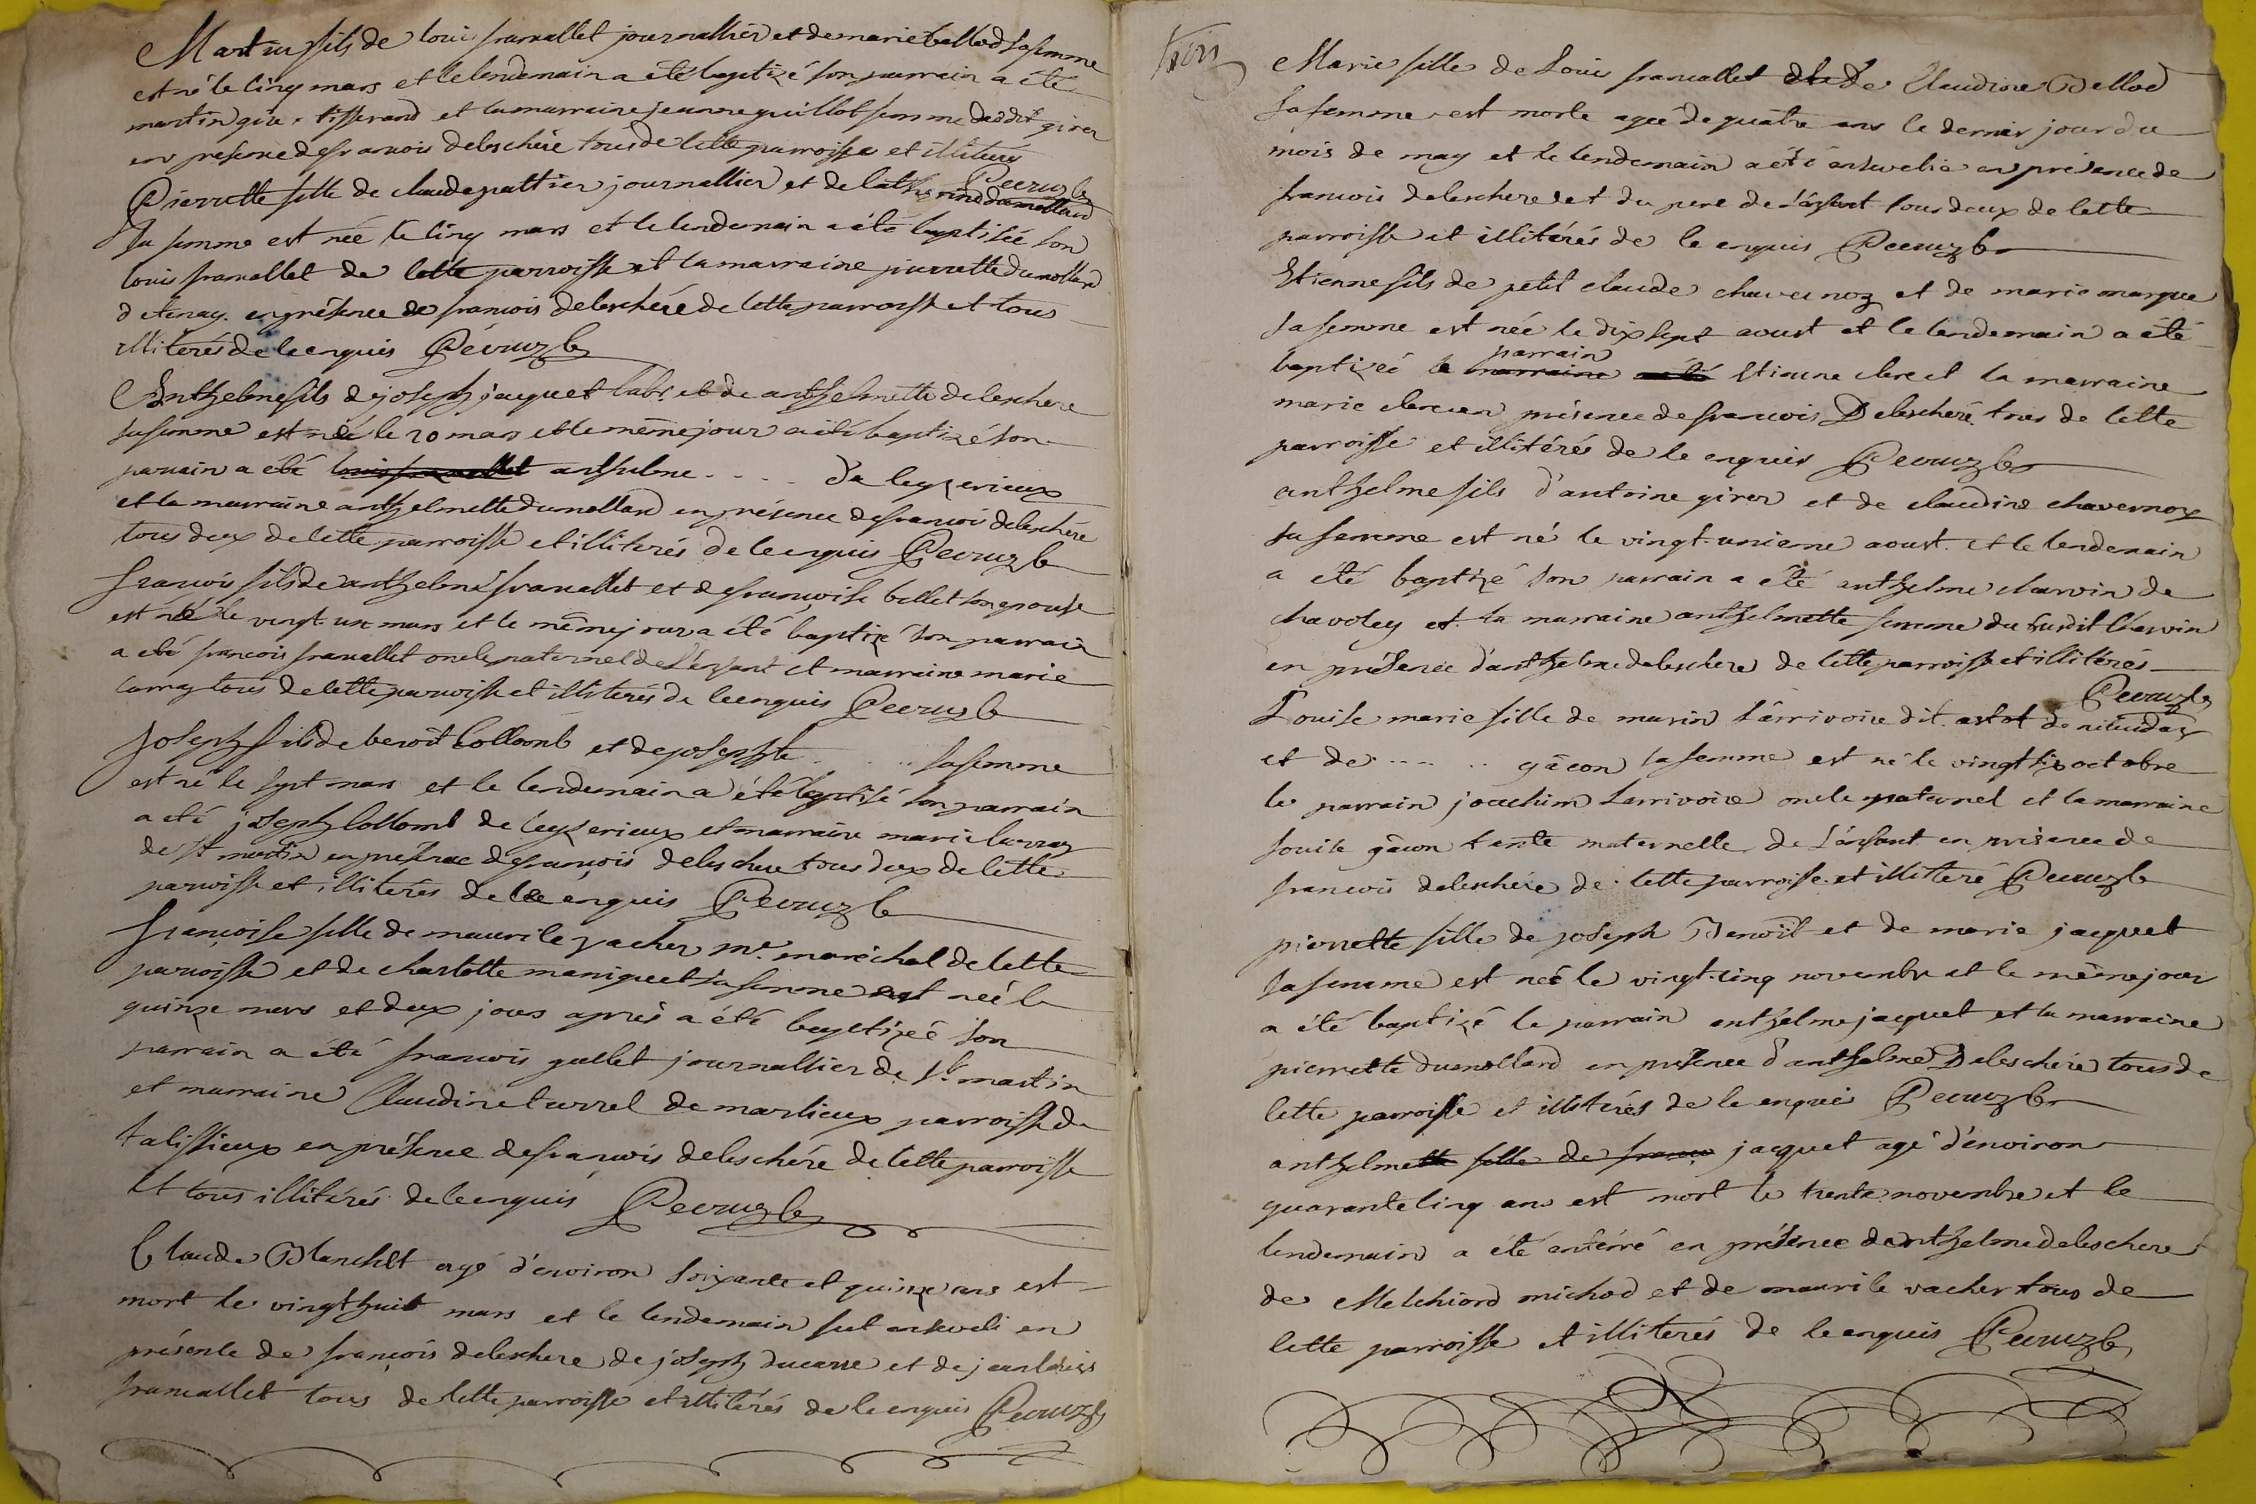 Martin fils de louis francallet journallier et de marie ballod sa femme
est né le cinq mars et le lendemain a été baptizé son parrain a été
martin girer tisserand et la marraine jeanne guillot femme dudit girer
en presence de francois deleschére tous de cette parroisse et illiterés
Pecruz b
Pierrette fille de claude pattier journallier et de catherine dumollard
sa femme est née le cinq mars et le lendemain a été baptisée son
louis francallet de cette parroisse et la marraine pierrette dumollard
d'etenay en présence de francois deleschére de cette parroisse et tous
illiterés de ce enquis Pécruz b
Anthelme fils de joseph jacquet labr. et de anthelmette deleschere
sa femme est né le 20 mars et le même jour a été baptizé son
parrain a été louis francallet anthelme . . . . de leyzerieux
et la marraine anthelmette dumollard en présence de francois deleschére
tous deux de cette parroisse et illiterés de ce enquis Pecruz b
francois fils de anthelme francallet et de francoise billet son epouse
est né le vingt un mars et le même jour a été baptizé son parrain
a été francois francallet oncle paternel de l'enfant et marraine marie
curray tous de cette parroisse et illiterés de ce enquis Pecruz b
Joseph fils de benoit Collomb et de josephte . . . . sa femme
est né le sept mars et le lendemain a été baptisé son parrain
a été joseph collomb de leyzerieux et marraine marie curray
de st martin en présence de francois deleschere tous deux de cette
parroisse et illiterés de ce enquis Pecruz b
françoise fille de maurile vacher me. maréchal de cette
parroisse et de charlotte maniquet sa femme est née le
quinze mars et deux jours après a été baptizée son
parrain a été francois gullet journallier de st. martin
et marraine Claudine turrel de marlieux parroisse de
talissieux en présence de francois deleschére de cette parroisse
et tous illitérés de ce enquis Pecruz b
Claude Blanchet agé d'environ soixante et quinze ans est
mort le vingt huit mars et le lendemain fut enseveli en
présence de françois deleschere de joseph ducarre et de jean louis
francallet tous de cette parroisse et illitérés de ce enquis Pecruz b
trois
Marie fille de Louis francallet et de Claudine Ballod
sa femme est morte agée de quatre ans le dernier jour du
mois de may et le lendemain a été ensevelie en présence de
francois deleschere et du pere de l'enfant tous deux de cette
parroisse et illitérés de ce enquis Pecruz b
Etienne fils de petit claude chavernoz et de marie marque
sa femme est née le dix sept aoust et le lendemain a été
parrain
baptizé le marraine a été Etienne clerc et la marraine
marie clerc en présence de francois Deleschere tous de cette
parroisse et illitérés de ce enquis Pecruz b
anthelme fils d'antoine girer et de claudine chavernoz
sa femme est né le vingt-unieme aoust et le lendemain
a été baptizé son parrain a été anthelme charvin de
chavoley et la marraine anthelmette femme du susdit Charvin
en présence d'anthelme deleschere de cette parroisse et illitérés
Pecruz b
Louise marie fille de marin Larrivoire dit astot
et de . . . . . . gâcon sa femme est né le vingt six octobre
le parrain joachim Larrivoire oncle paternel et la marraine
Louise gâcon tante maternelle de l'enfant en présence de
francois deleschére de cette parroisse et illiteré Pecruz b
pierrette fille de joseph Benoit et de marie jacquet
sa femme est neé le vingt-cinq novembre et le même jour
a été baptizé le parrain anthelme jacquet et la marraine
pierrette dumollard en présence d'anthelme Deleschére tous de
cette parroisse et illitérés de ce enquis Pecruz b
anthelmette fille de franço jacquet agé d'environ
quarante cinq ans est mort le trente novembre et le
lendemain a été enterré en présence d'anthelme deleschere
de Melchiord michod et de maurile vacher tous de
cette parroisse et illiterés de ce enquis Pecruz b